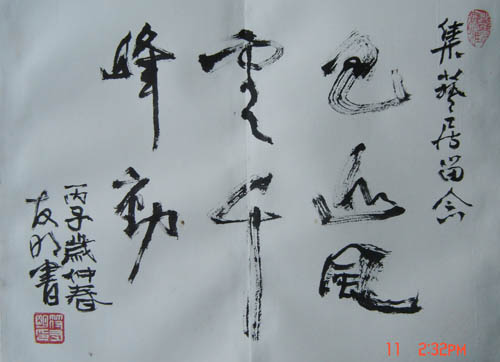 集藝居留念
巴山風
雲千
峰動
丙子歲仲春
友明書
11 2:32PM